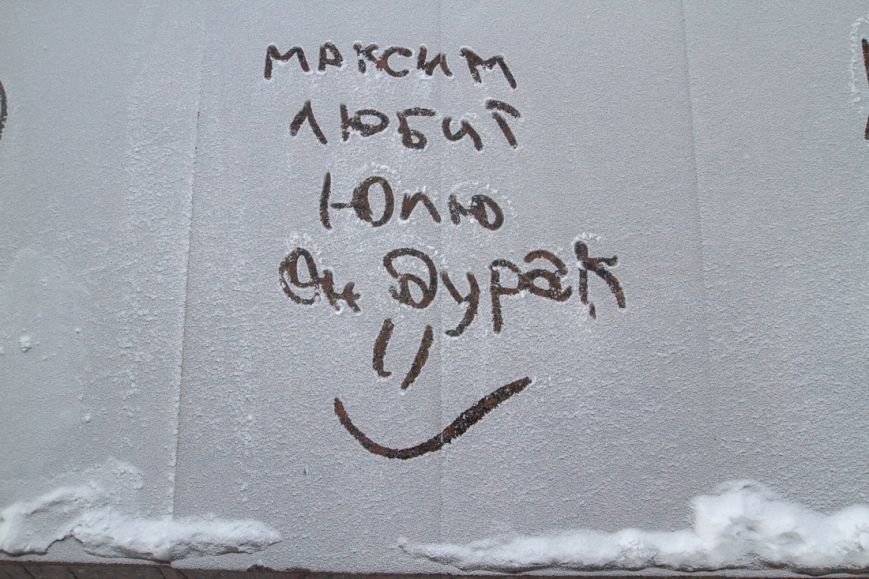 максим
любит
Юлю
Он Дурак